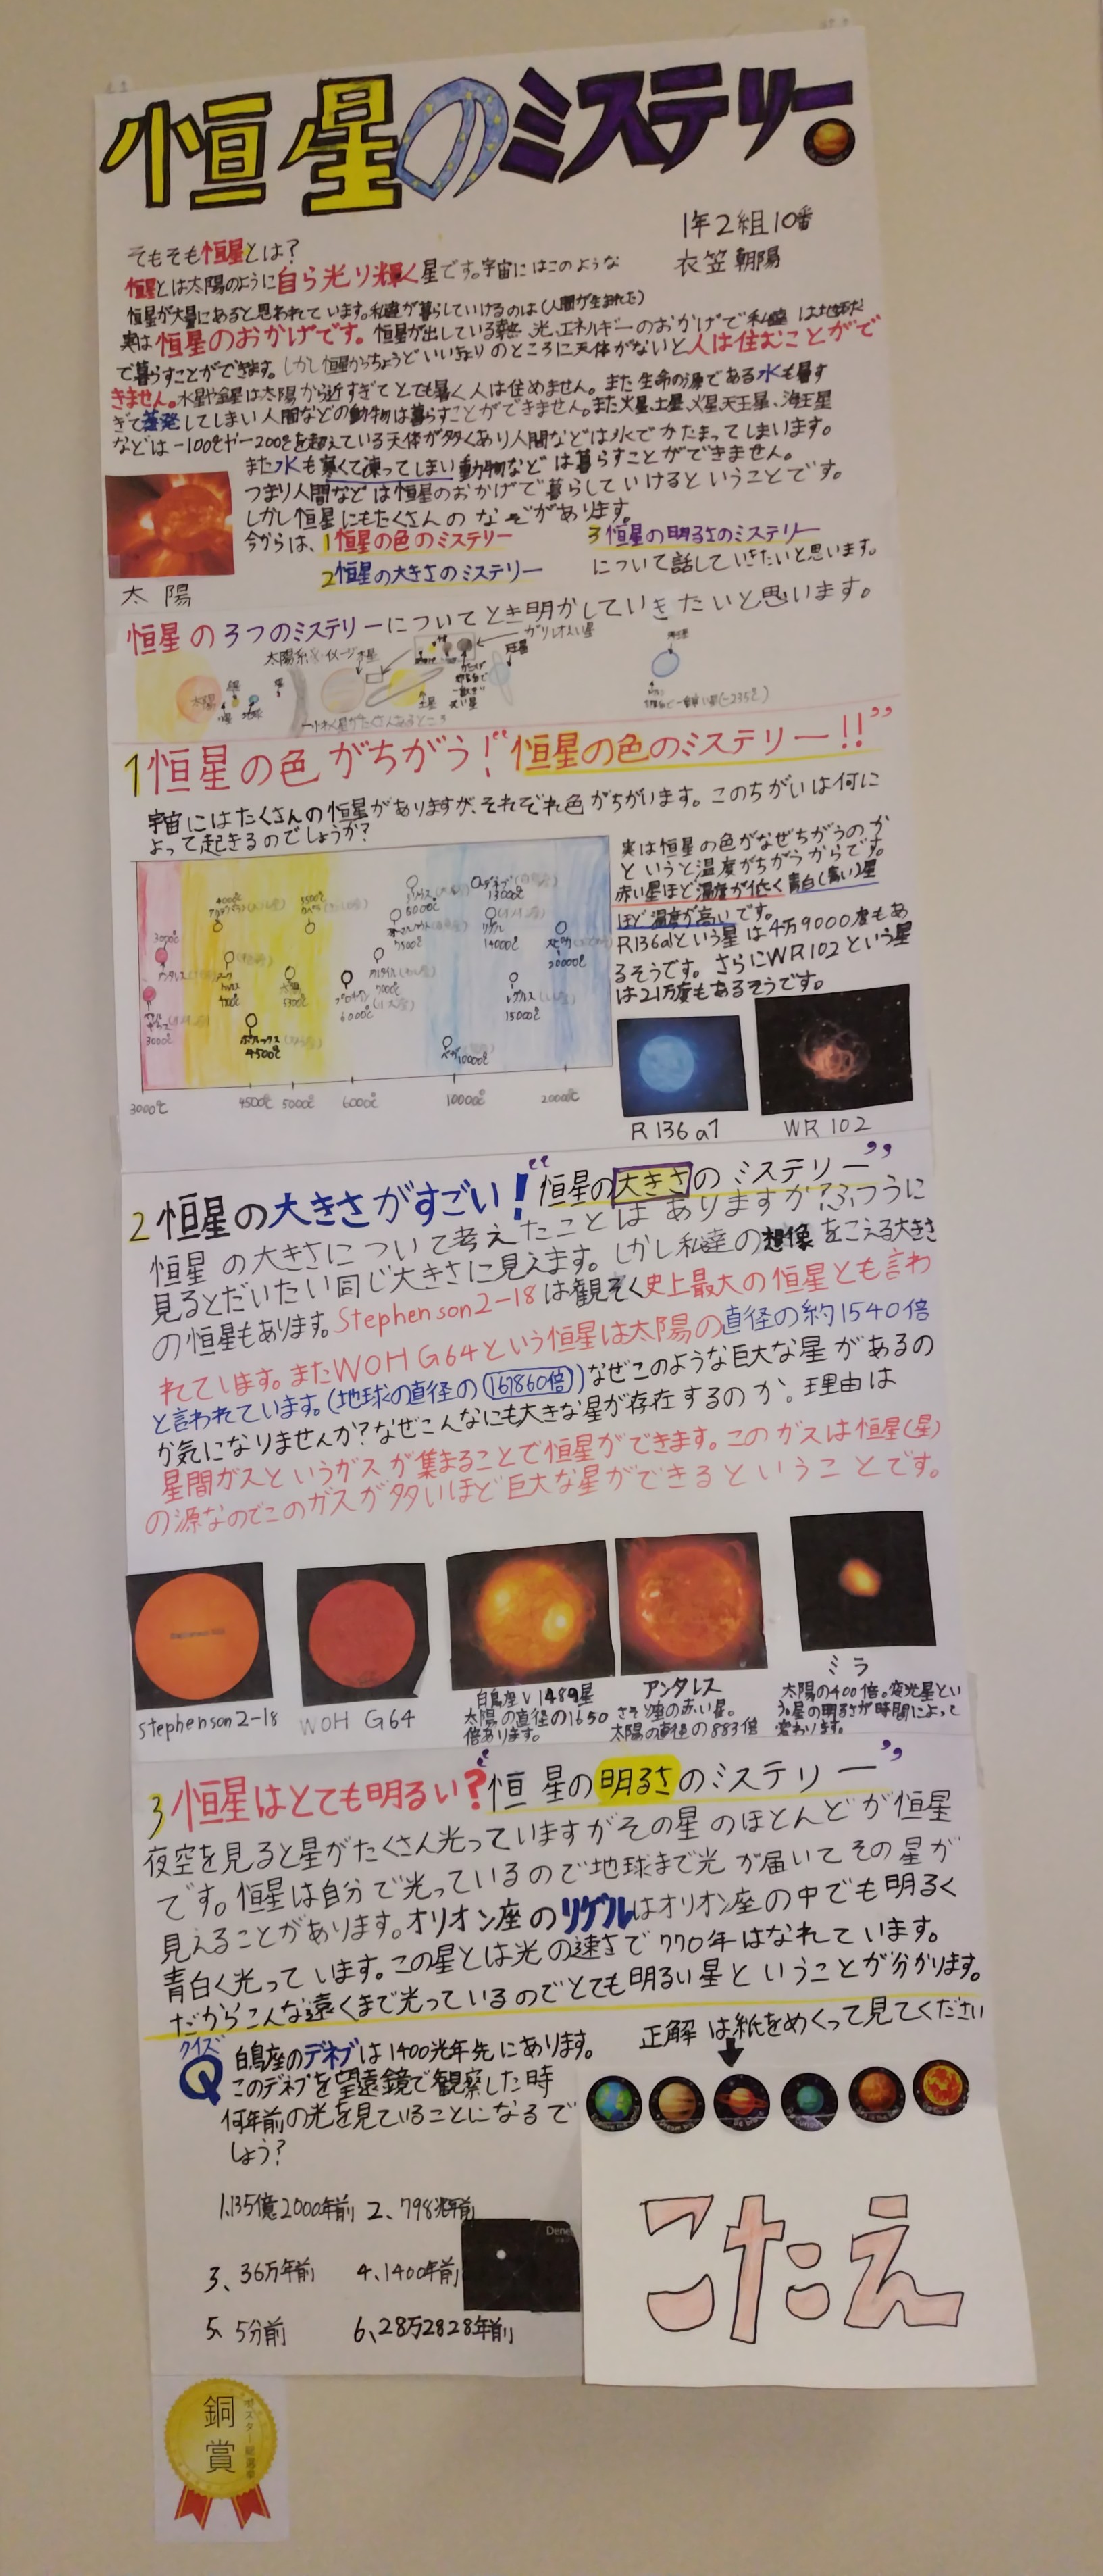 恒星のミステリー
1年2組10番
衣笠朝陽
そもそも恒星とは？
恒星とは太陽のように自ら光り輝く星です。宇宙にはこのような
恒星が大量にあると思われています。私達が暮らしていけるのは(人間が生まれた)
実は恒星のおかげです。恒星が出している熱、光、エネルギーのおかげで私達は
で暮らすことができます。しかし恒星からちょうどいいきょりのところに天体がないと人は住むことがで
きません。水星や金星は太陽から近すぎてとても暑く人は住めません。また生命の源である水も暑す
ぎて蒸発してしまい人間などの動物は暮らすことができません。また火星、土星、火星、天王星、海王星
などは-100℃や-200℃を超えている天体が多くあり人間などは氷でかたまってしまいます。
また水も寒くて凍ってしまい動物などは暮らすことができません。
つまり人間などは恒星のおかげで暮らしていけるということです。
しかし恒星にもたくさんのなぞがあります。
今からは、1恒星の色のミステリー 3恒星の明るさのミステリー
2恒星の大きさのミステリー について話していきたいと思います。
太陽
恒星の3つのミステリーについてとき明かしていきたいと思います。
太陽系 イメージ
太陽
地球
木星
土星
1恒星の色がちがう！“恒星の色のミステリー!!”
宇宙にはたくさんの恒星がありますが、それぞれ色がちがいます。このちがいは何に
よって起きるのでしょうか？
実は恒星の色がなぜちがうのか
というと温度がちがうからです。
赤い星ほど温度が低く青白(青い)星
ほど温度が高いです。
R136a1という星は4万9000度もあ
るそうです。さらにWR102という星
は21万度もあるそうです。
3000℃
アンタレス
3000℃
4500℃
ポルックス
4500℃
プロキオン
6000℃
7000℃
シリウス
デネブ
リゲル
スピカ
20000℃
レグルス
15000℃
ベガ
10000℃
3000℃ 4500℃ 5000℃ 6000℃ 10000℃ 20000℃
R136a1
WR102
2恒星の大きさがすごい！“恒星の大きさのミステリー”
恒星の大きさについて考えたことはありますか？ふつうに
見るとだいたい同じ大きさに見えます。しかし私達の想像をこえる大きさ
の恒星もあります。Stephenson2-18は観そく史上最大の恒星とも言わ
れてします。またWOH G64という恒星は太陽の直径の約1540倍
と言われています。(地球の直径の(167860倍))なぜこのような巨大な星があるの
か気になりませんか？なぜこんなにも大きな星が存在するのか。理由は
星間ガスというガスが集まることで恒星ができます。このガスは恒星(星)
の源なのでこのガスが多いほど巨大な星ができるということです。
stephenson2-18
WOH G64
白鳥座V1489星
太陽の直径の1650
倍あります。
アンタレス
さそり座の赤い星。
太陽の直径の883倍
ミラ
太陽の400倍。変光星とい
う星の明るさが時間によって
変わります。
3恒星はとても明るい？“恒星の明るさのミステリー”
夜空を見ると星がたくさん光っていますがその星のほとんどが恒星
です。恒星は自分で光っているので地球まで光が届いてその星が
見えることがあります。オリオン座のリゲルはオリオン座の中でも明るく
青白く光っています。この星とは光の速さで770年はなれています。
だからこんな遠くまで光っているのでとても明るい星ということが分かります。
クイズ
Q 白鳥座のデネブは1400光年先にあります。
このデネブを望遠鏡で観察した時
何年前の光を見ていることになるで
しょう？
正解は紙をめくって見てください
1.135億2000年前 2、798兆年前
3、36万年前 4、1400年前
5、5分前 6、28万2828年前
こたえ
銅賞
ポスター総選挙